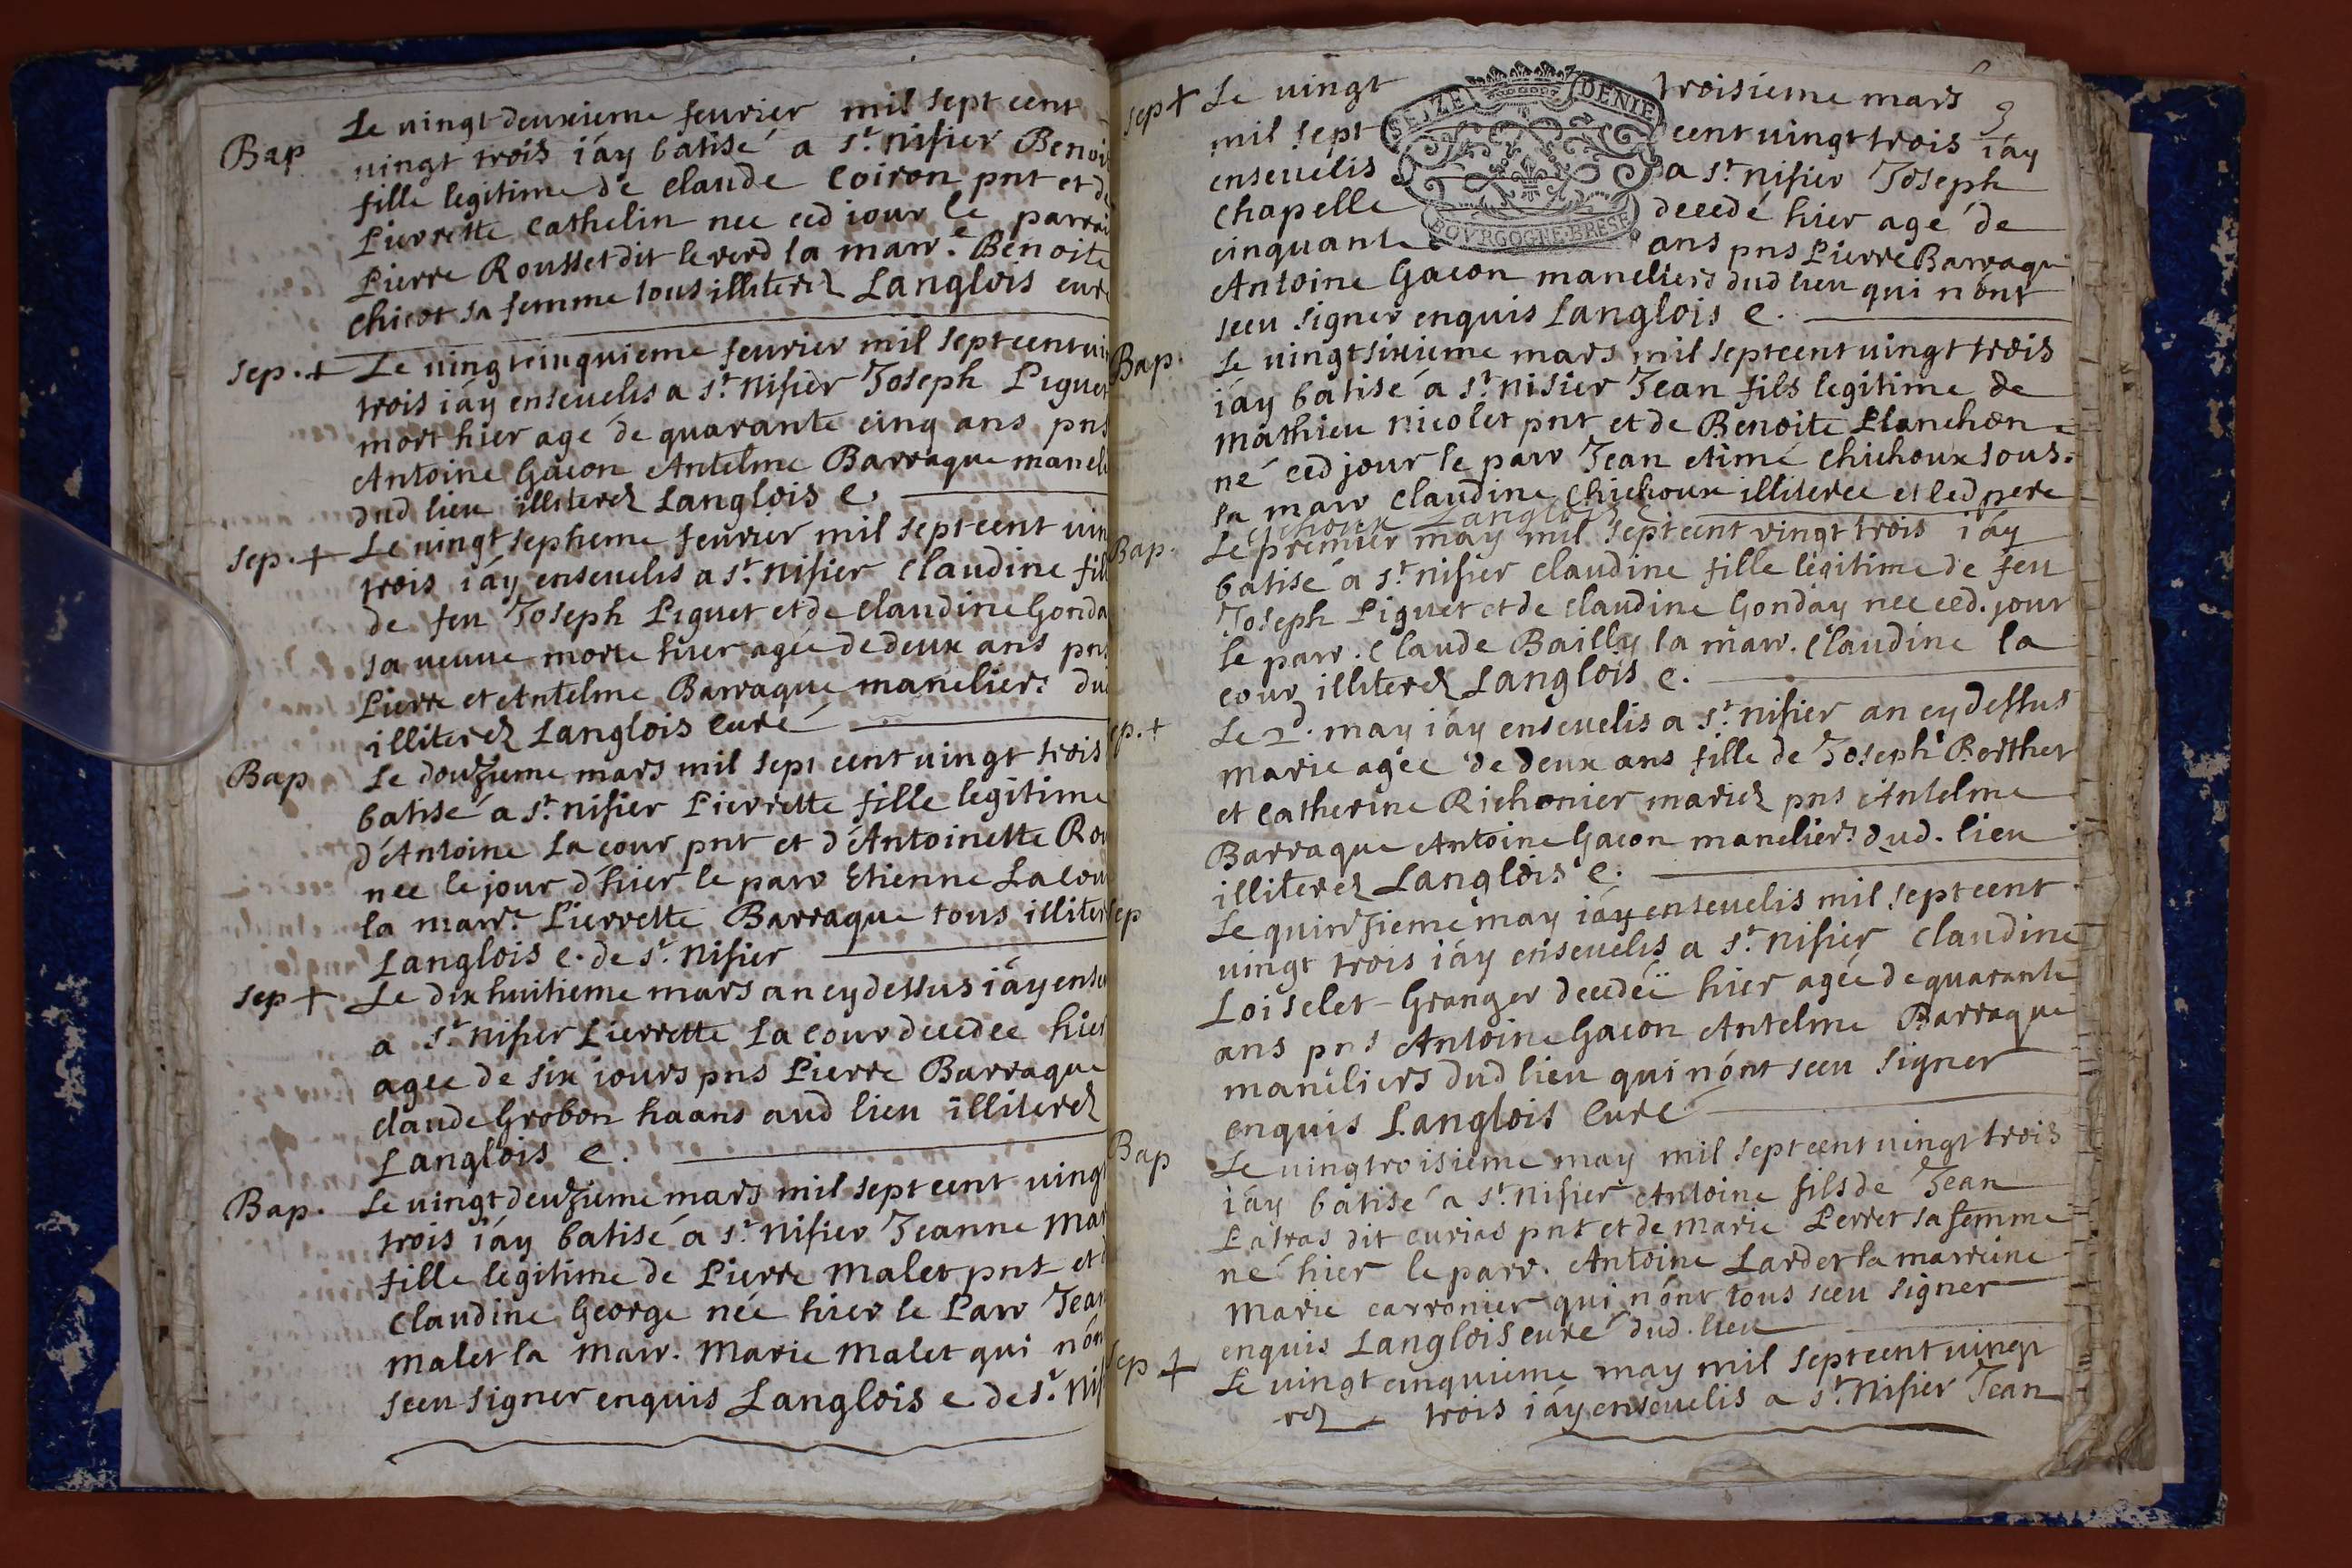 Bap
Le vingt deuxieme fevrier mil sept cent
vingt trois i'ay batisé a St. nisier Benoi
fille legitime de claude Coiron pnt et de
Pierrette Cathelin nee ced iour le parrai
Pierre Rousset dit le verd la marr.e Benoite
Chicot sa femme tous illiterez Langlois curé
Sep. + Le vingt cinquieme fevrier mil sept cent vin
trois i'ay ensevelis a St. Nisier Joseph Piguet
mort hier agé de quarante cinq ans pns
Antoine Gacon Antelme Barraque maneli
dud lieu illiterez Langlois C.
Sep. + Le vingt septieme fevrier mil sept cent vin
trois i'ay ensevelis a St. Nisier Claudine fill
de feu Joseph Piguet et de Claudine Gonda
sa veuve morte hier agée de deux ans pns
Pierre et Antelme Barraque maneliers du
illiterez Langlois Curé
Bap Le douzieme mars mil sept cent vingt trois
batisé a St. nisier Pierrette fille legitime
d'Antoine La cour pnt et d'Antoinette Rou
nee le jour d'hier le parr Etienne Lacour
la marr.e Pierrette Barraque tous illiter
Langlois C. de St. Nisier
Sep + Le dix huitieme mars an cy dessus i'ay ense
a St. Nisier Pierrette La cour decedee hier
agee de six iours pns Pierre Barraque
claude Grobon haans aud lieu illiterez
Langlois C.
Bap. Le vingt deuzieme mars mil sept cent vingt
trois i'ay batisé a St. Nisier Jeanne Mar
fille legitime de Pierre Malet pnt et d
Claudine George née hier le Parr Jean
Malet la Marr. Marie Malet qui n'on
sceu signer enquis Langlois C de St. Nis
3
SEIZE DENIE
BOVRGOGNE BRESSE
Sep + Le vingt troisieme mars
mil sept cent vingt trois i'ay
ensevelis a St. nisier Joseph
Chapelle decedé hier agé de
cinquante ans pns Pierre Barraque
Antoine Gacon maneliers dud lieu qui n'ont
sceu signer enquis Langlois C.
Bap. Le vingt sixieme mars mil sept cent vingt trois
i'ay batisé a St. Nisier Jean fils legitime de
Mathieu Nicolet pnt et de Benoite Planchon
né ced jour le parr Jean Aimé Chichoux sous.
la marr Claudine Chichoux illiteree et led pere
Chichoux Langlois C
Bap. Le premier may mil sept cent vingt trois i'ay
batisé a St. nisier Claudine fille legitime de feu
Joseph Piguet et de Claudine Gonday nee ced. jour
le parr. Claude Bailly la marr. Claudine la
cour illiterez Langlois C.
ep. + Le 2d. may i'ay ensevelis a St. Nisier an cy dessus
Marie agée de deux ans fille de Joseph Berthet
et Catherine Richonier mariez pns Antelme
Barraque Antoine Gacon maneliers dud. lieu
illiterez Langlois C.
Sep Le quinzieme may i'ay ensevelis mil sept cent
vingt trois i'ay ensevelis a St. Nisier Claudine
Loiselet Granger decedée hier agée de quarante
ans pns Antoine Gacon Antelme Barraque
maneliers dud lieu qui n'ont sceu signer
enquis Langlois Curé
Bap Le vingtroisieme may mil sept cent vingt trois
i'ay batisé a St. Nisier Antoine fils de Jean
Patras dit curias pnt et de Marie Perret sa femme
né hier le parr. Antoine Lardet la marreine
Marie carronier qui n'ont tous sceu signer
enquis Langlois curé dud. lieu
Sep + Le vingt cinquieme may mil sept cent vingt
trois i'ay ensevelis a St. Nisier Jean